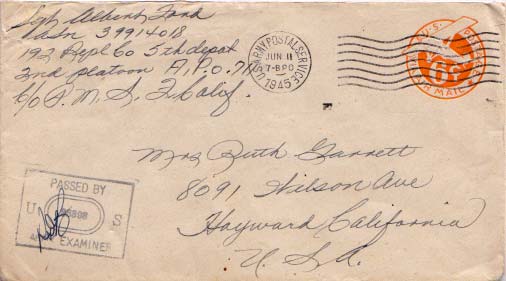 Sgt Albert Ford
Asn 39914018
192 Repl Co 5th depot
2nd platoon A.P.O. 711
c/o P. M. S. F Calif.
U.S. ARMY POSTAL SERVICE
JUN 11
7-30PM
1945
U.S. POSTAGE
6¢
VIA AIR MAIL
Mrs Ruth Garrett
8091 Wilson Ave
Hayward California
U.S.A.
PASSED BY
U S
ARMY EXAMINER